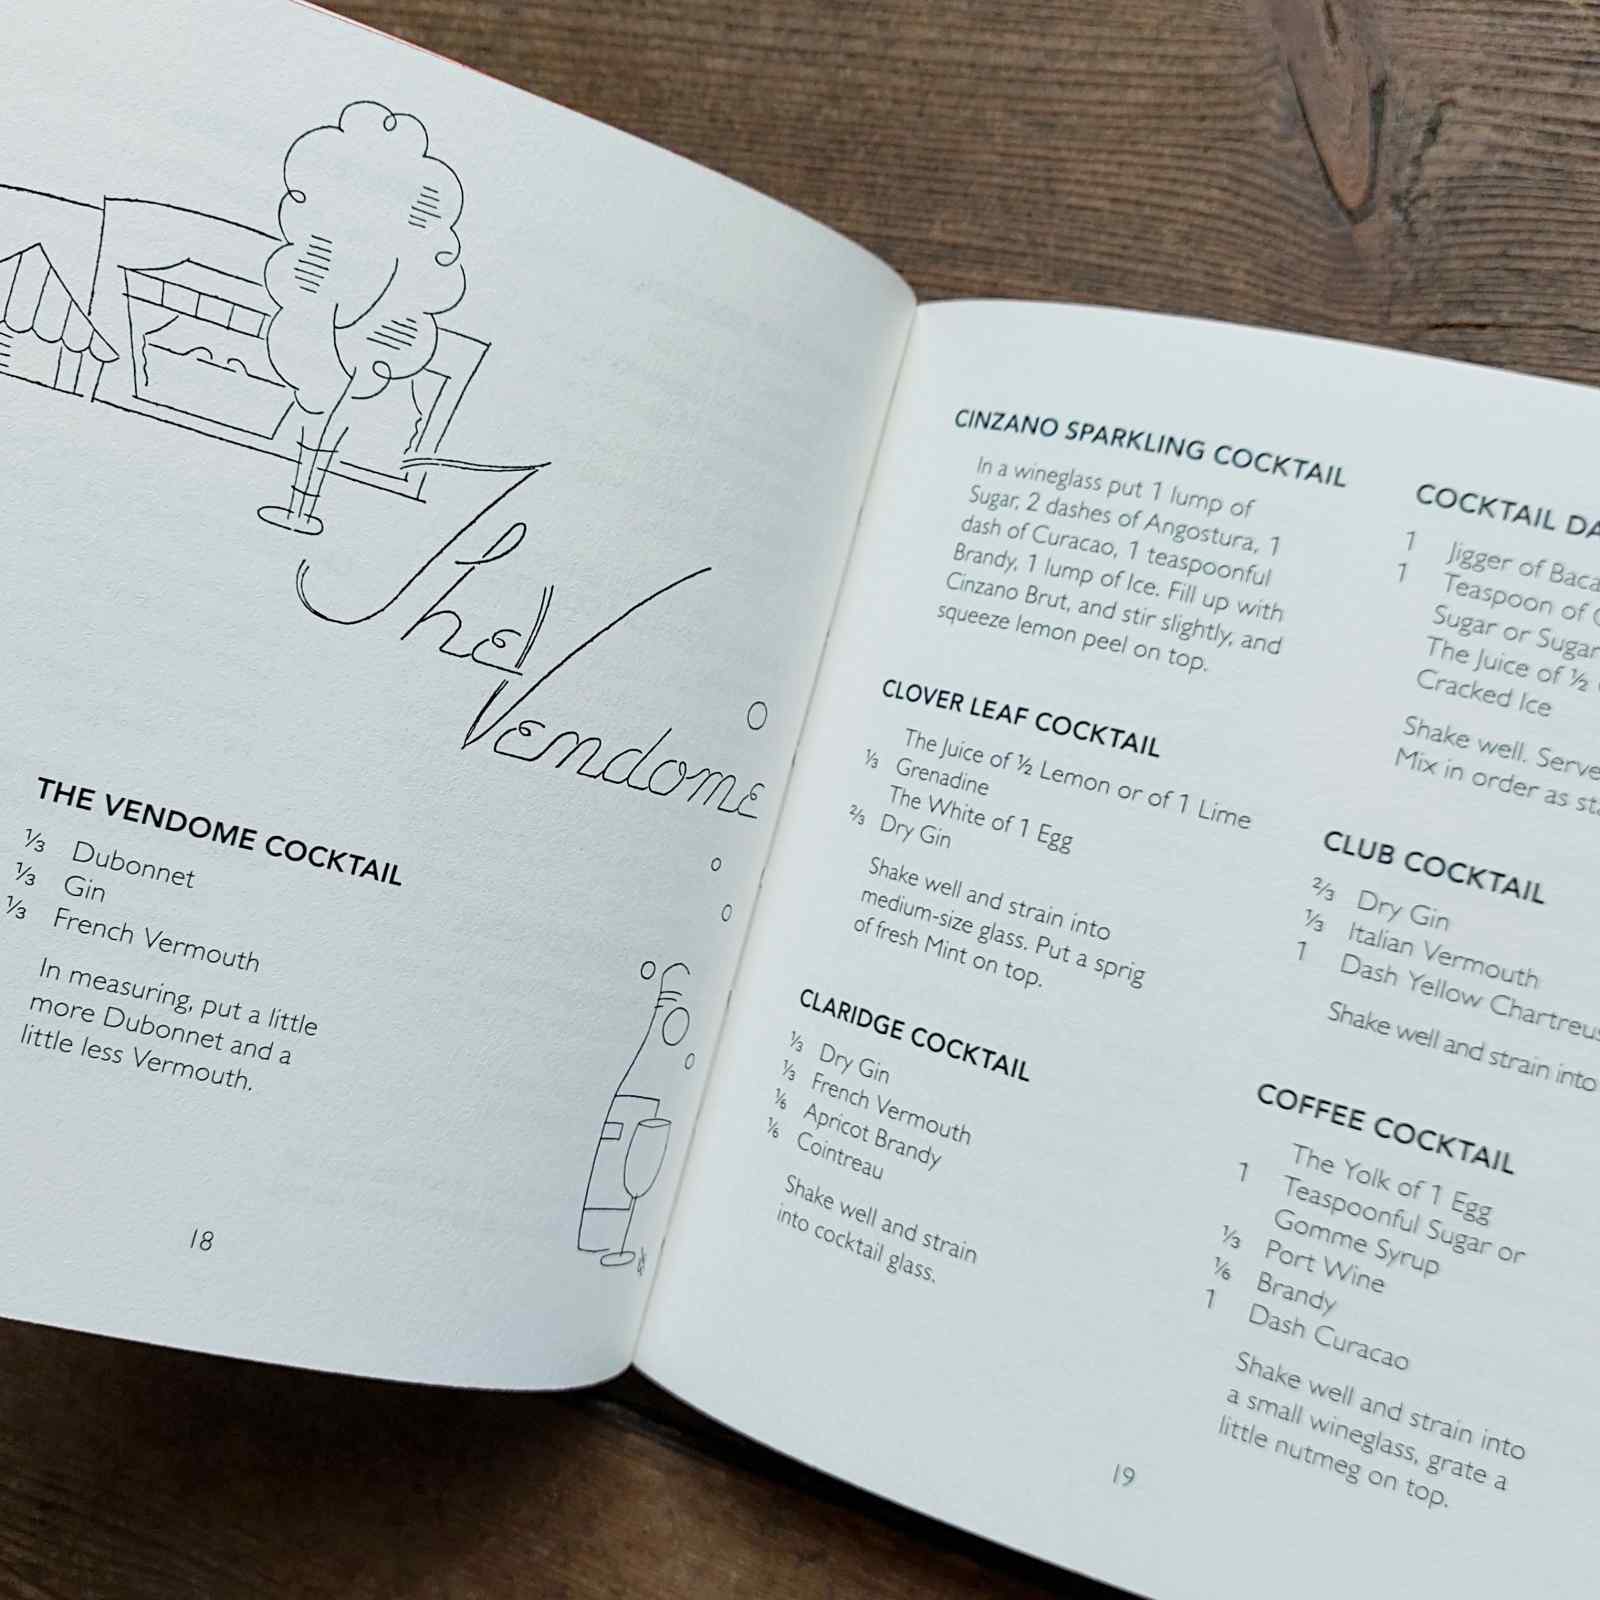 The
Vendome
THE VENDOME COCKTAIL
⅓ Dubonnet
⅓ Gin
⅓ French Vermouth
In measuring, put a little
more Dubonnet and a
little less Vermouth.
18
CINZANO SPARKLING COCKTAIL
In a wineglass put 1 lump of
Sugar, 2 dashes of Angostura, 1
dash of Curacao, 1 teaspoonful
Brandy, 1 lump of Ice. Fill up with
Cinzano Brut, and stir slightly, and
squeeze lemon peel on top.
CLOVER LEAF COCKTAIL
The Juice of ½ Lemon or of 1 Lime
⅓ Grenadine
The White of 1 Egg
⅔ Dry Gin
Shake well and strain into
medium-size glass. Put a sprig
of fresh Mint on top.
CLARIDGE COCKTAIL
⅓ Dry Gin
⅓ French Vermouth
⅙ Apricot Brandy
⅙ Cointreau
Shake well and strain
into cocktail glass.
COCKTAIL
1 Jigger of
1 Teaspoon of
Sugar or Sugar
The Juice of ½
Cracked Ice
Shake well. Serve
Mix in order as
CLUB COCKTAIL
⅔ Dry Gin
⅓ Italian Vermouth
1 Dash Yellow
Shake well and strain into
COFFEE COCKTAIL
The Yolk of 1 Egg
1 Teaspoonful Sugar or
Gomme Syrup
⅓ Port Wine
⅙ Brandy
1 Dash Curacao
Shake well and strain into
a small wineglass, grate a
little nutmeg on top.
19